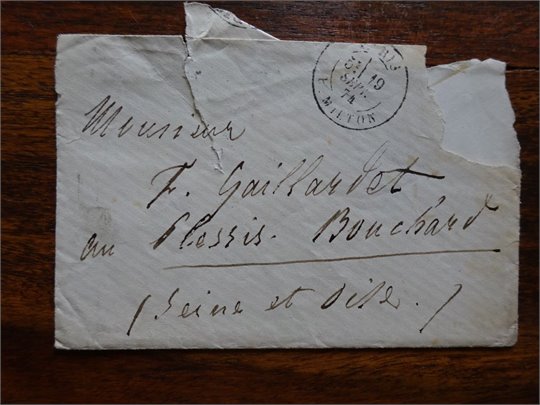 PARIS
5E 19
SEPT.
74
R. MILTON
Monsieur
F. Gaillardet
au Plessis. Bouchard
(Seine et Oise.)